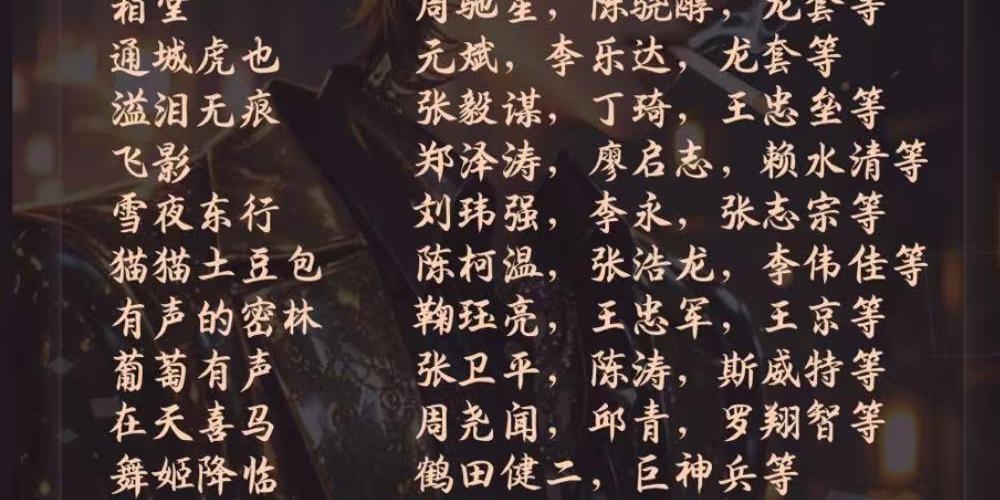 相堂 周驰星，陈骁醇，龙套等
通城虎也 元斌，李乐达，龙套等
溢泪无痕 张毅谋，丁琦，王忠垒等
飞影 郑泽涛，廖启志，赖水清等
雪夜东行 刘玮强，李永，张志宗等
猫猫土豆包 陈柯温，张浩龙，李伟佳等
有声的密林 鞠珏亮，王忠军，王京等
葡萄有声 张卫平，陈涛，斯威特等
在天喜马 周尧闻，邱青，罗翔智等
舞姬降临 鹤田健二，巨神兵等